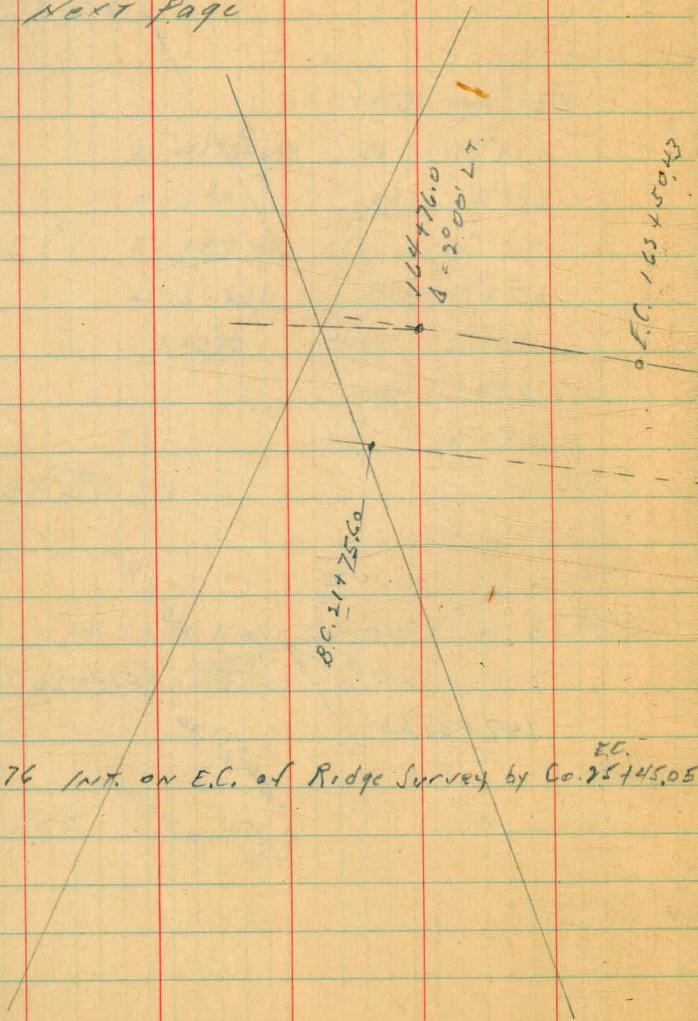 Next Page
164+76.0
Δ = 2°00' LT.
E.C. 163+50.43
B.C. 21+75.60
E.C.
76 Int. on E.C. of Ridge Survey by Co. 25+45.05